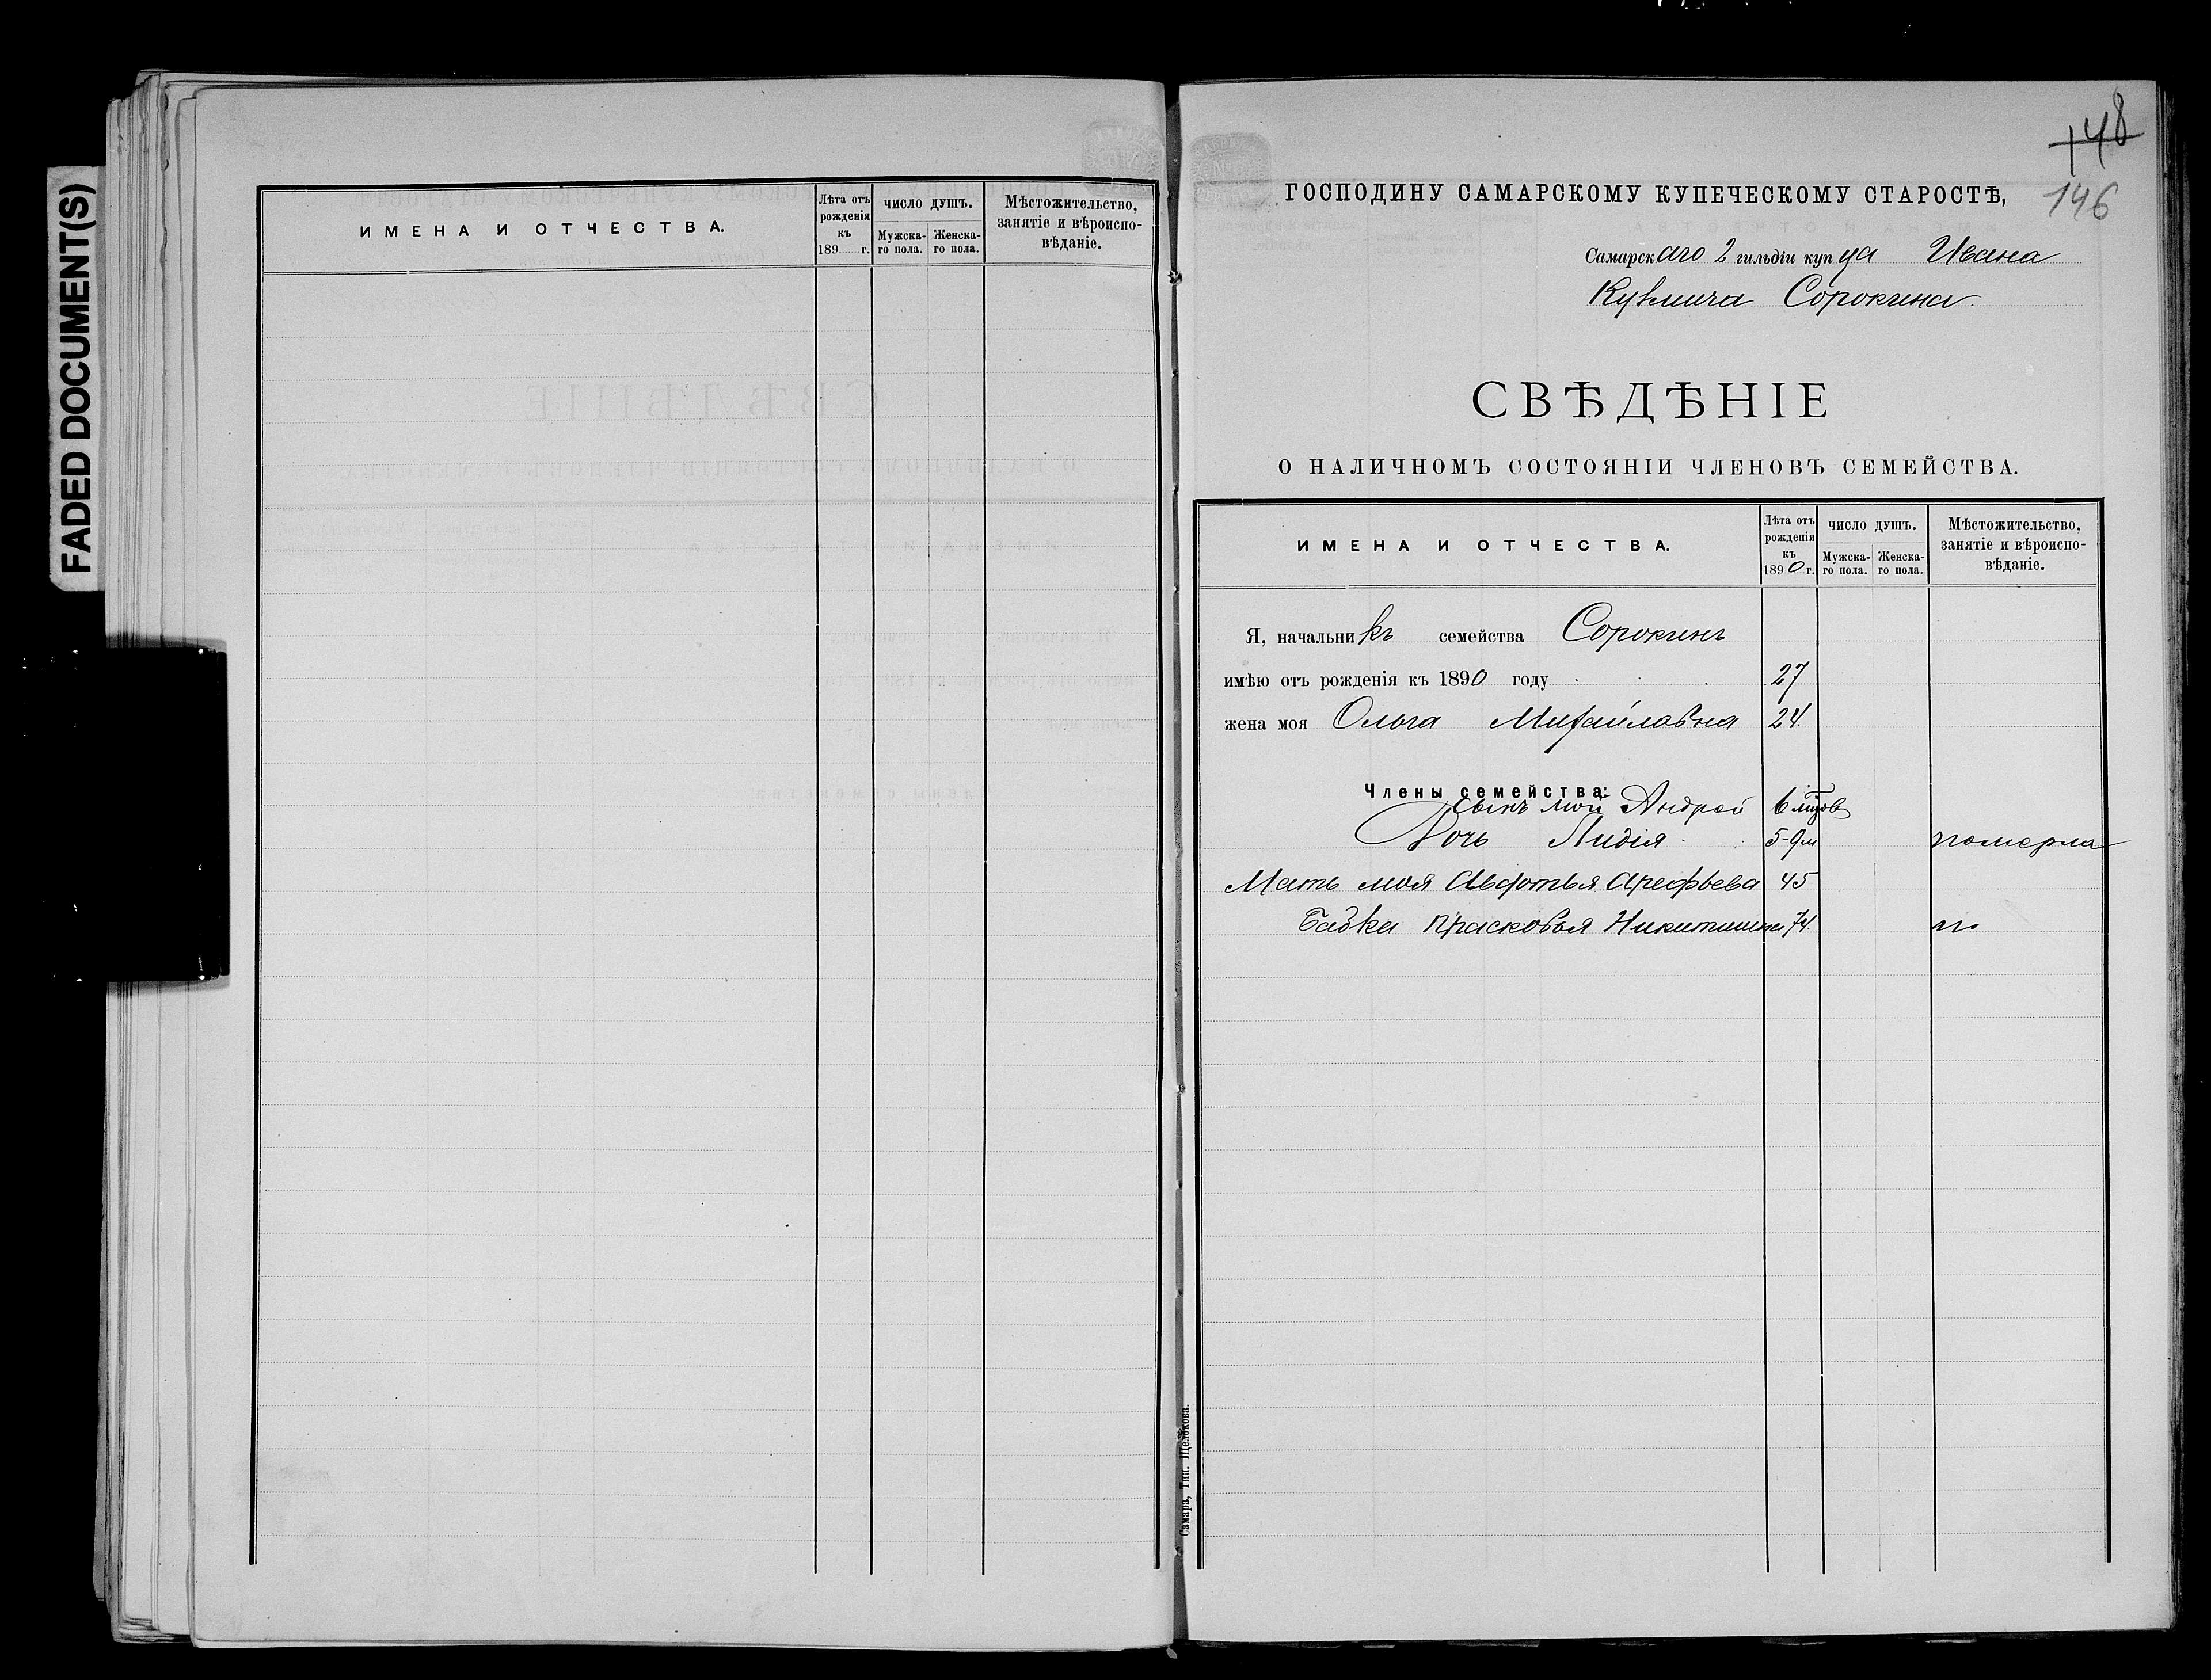 FADED DOCUMENT(S)
ИМЕНА И ОТЧЕСТВА.
Лѣта отъ рожденія къ 189 г.
ЧИСЛО ДУШЪ.
Мужска-го пола.
Женска-го пола.
Мѣстожительство, занятіе и вѣроиспо-вѣданіе.
148
146
ГОСПОДИНУ САМАРСКОМУ КУПЕЧЕСКОМУ СТАРОСТѢ,
Самарскаго 2 гильдіи купца Ивана
Кузьмича Сорокина
СВѢДѢНІЕ
О НАЛИЧНОМЪ СОСТОЯНІИ ЧЛЕНОВЪ СЕМЕЙСТВА.
ИМЕНА И ОТЧЕСТВА.
Лѣта отъ рожденія къ 1890 г.
ЧИСЛО ДУШЪ.
Мужска-го пола.
Женска-го пола.
Мѣстожительство, занятіе и вѣроиспо-вѣданіе.
Я, начальникъ семейства Сорокинъ
имѣю отъ рожденія къ 1890 году 27
жена моя Ольга Михайловна 24
Члены семейства:
Сынъ мой Андрей 6
Дочь Лидія 5-9м померла
Мать моя Авдотья Арефьева 45
Бабка Прасковья Никитишна 74
Самара, Тип. Щелокова.